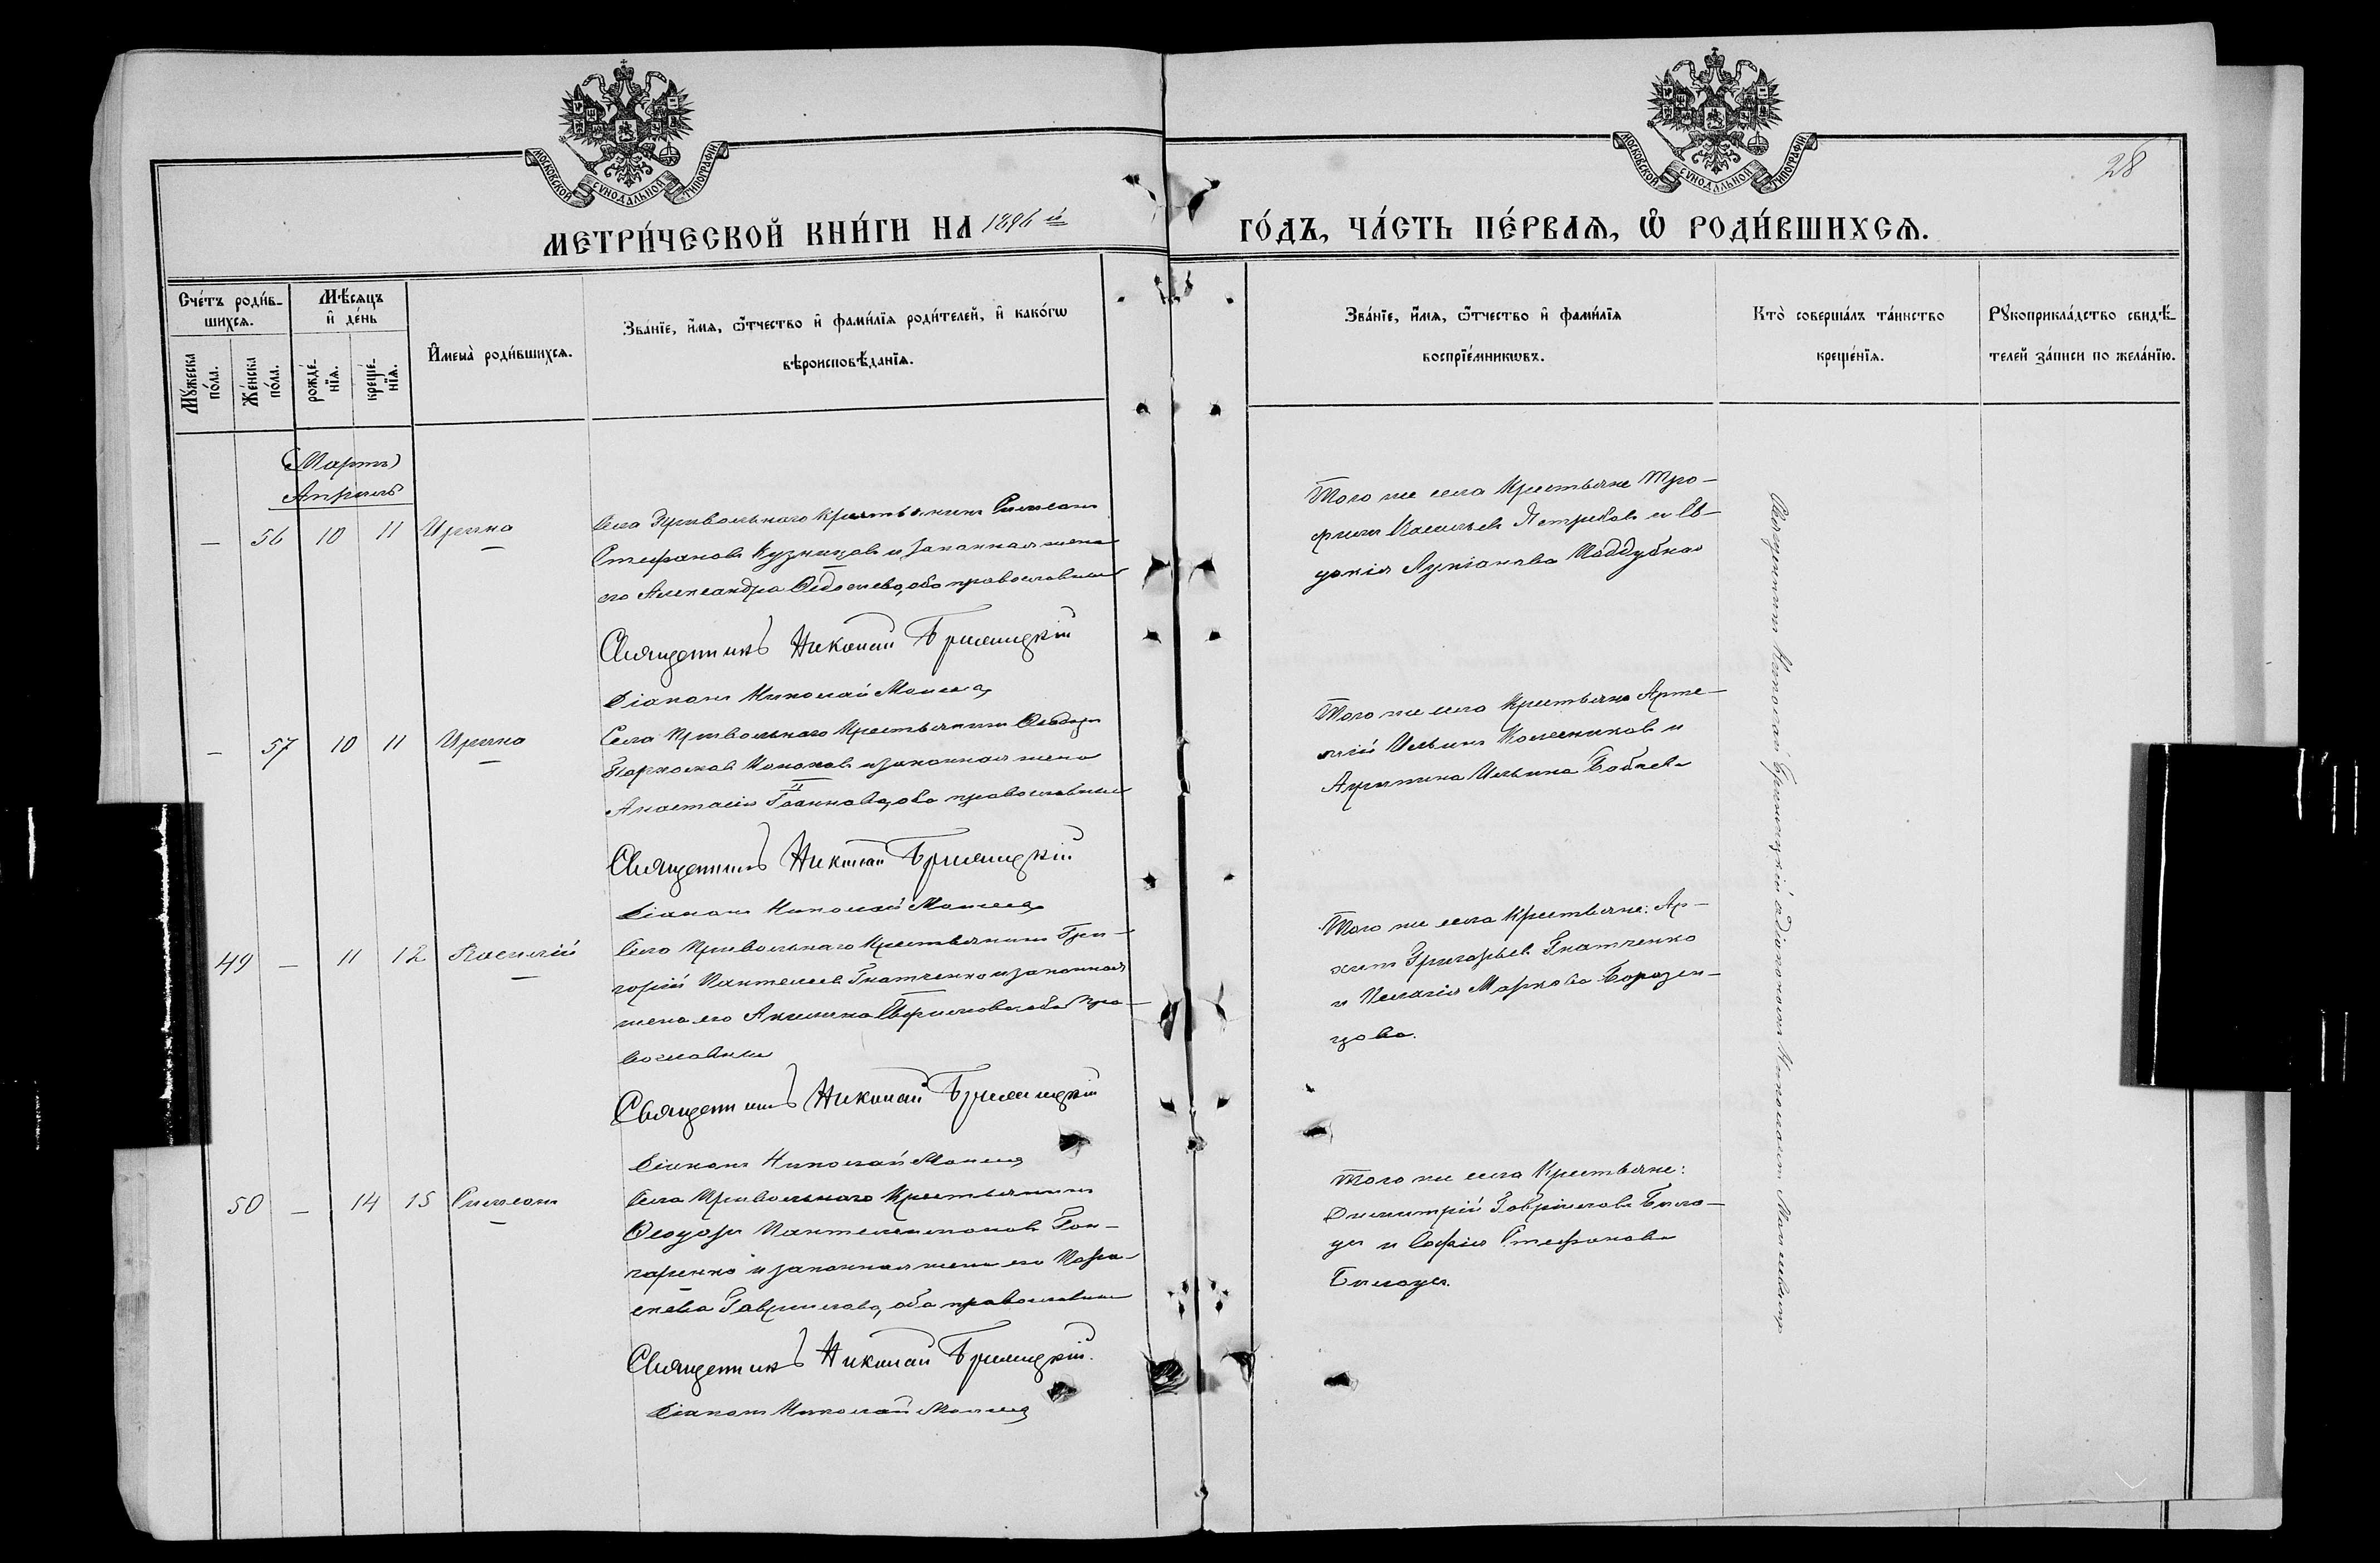 МОСКОВСКОЙ СѴНОДАЛЬНОЙ ТИПОГРАФІИ
МОСКОВСКОЙ СѴНОДАЛЬНОЙ ТИПОГРАФІИ
28
МЕТРИ́ЧЕСКОЙ КНИ́ГИ НА 1896 й ГО́ДЪ, ЧА́СТЬ ПЕ́РВАѦ, Ѡ҆ РОДИ́ВШИХСѦ.
Сче́тъ роди́в-
шихсѧ.
Мꙋ́жеска по́ла.
Же́нска по́ла.
Мѣ́сѧцъ
и҆ де́нь
рожде́-
нїѧ.
креще́-
нїѧ.
И҆мена̀ роди́вшихсѧ.
Зва́нїе, и҆́мѧ, ѻ҆́тчество и҆ фами́лїѧ роди́телей, и҆ како́гѡ
вѣроисповѣ́данїѧ.
Зва́нїе, и҆́мѧ, ѻ҆́тчество и҆ фами́лїѧ
воспрїе́мникѡвъ.
Кто̀ соверша́лъ та́инство
креще́нїѧ.
Рꙋкоприкла́дство свидѣ́-
телей за́писи по жела́нїю.
(Мартъ)
Апрель
— 56 10 11 Ирина
Села Привольнаго Крестьянинъ Симеонъ
Стефановъ Кузнецовъ и законная жена
его Александра Ѳедосиева, оба православные
Священникъ Николай Бриницкій
Діаконъ Николай
Того же села Крестьяне Тро-
фимъ Васильевъ Ястребовъ и Ев-
докія Лукіанова Поддубная
— 57 10 11 Ирина
Села Привольнаго Крестьянинъ Ѳеодоръ
Кононовъ и законная жена
Анастасія Іоаннова, оба православные
Священникъ Николай Бриницкій
Діаконъ Николай
Того же села Крестьяне Арте-
мій Ильинъ Колесниковъ и
Акулина Ильина Бабаева
49 — 11 12 Василій
Села Привольнаго Крестьянинъ Гри-
горій Пантелеевъ Гнатченко и законная
жена его Акилина Ефимова, оба пра-
вославные
Священникъ Николай Бриницкій
Діаконъ Николай
Того же села Крестьяне: Ар-
хипъ Григорьевъ Гнатченко
и Пелагія Маркова Борозен-
цова.
50 — 14 15 Симеонъ
Села Привольнаго Крестьянинъ
Ѳеодоръ Пантелеимоновъ Гон-
чаренко и законная жена его Пара-
скева Гавриилова, оба православные
Священникъ Николай Бриницкій.
Діаконъ Николай
Того же села Крестьяне:
Димитрій Гавріиловъ Бело-
усъ и Софія Стефанова
Белоусъ.
Священникъ Николай Бриницкій съ Діакономъ Николаемъ